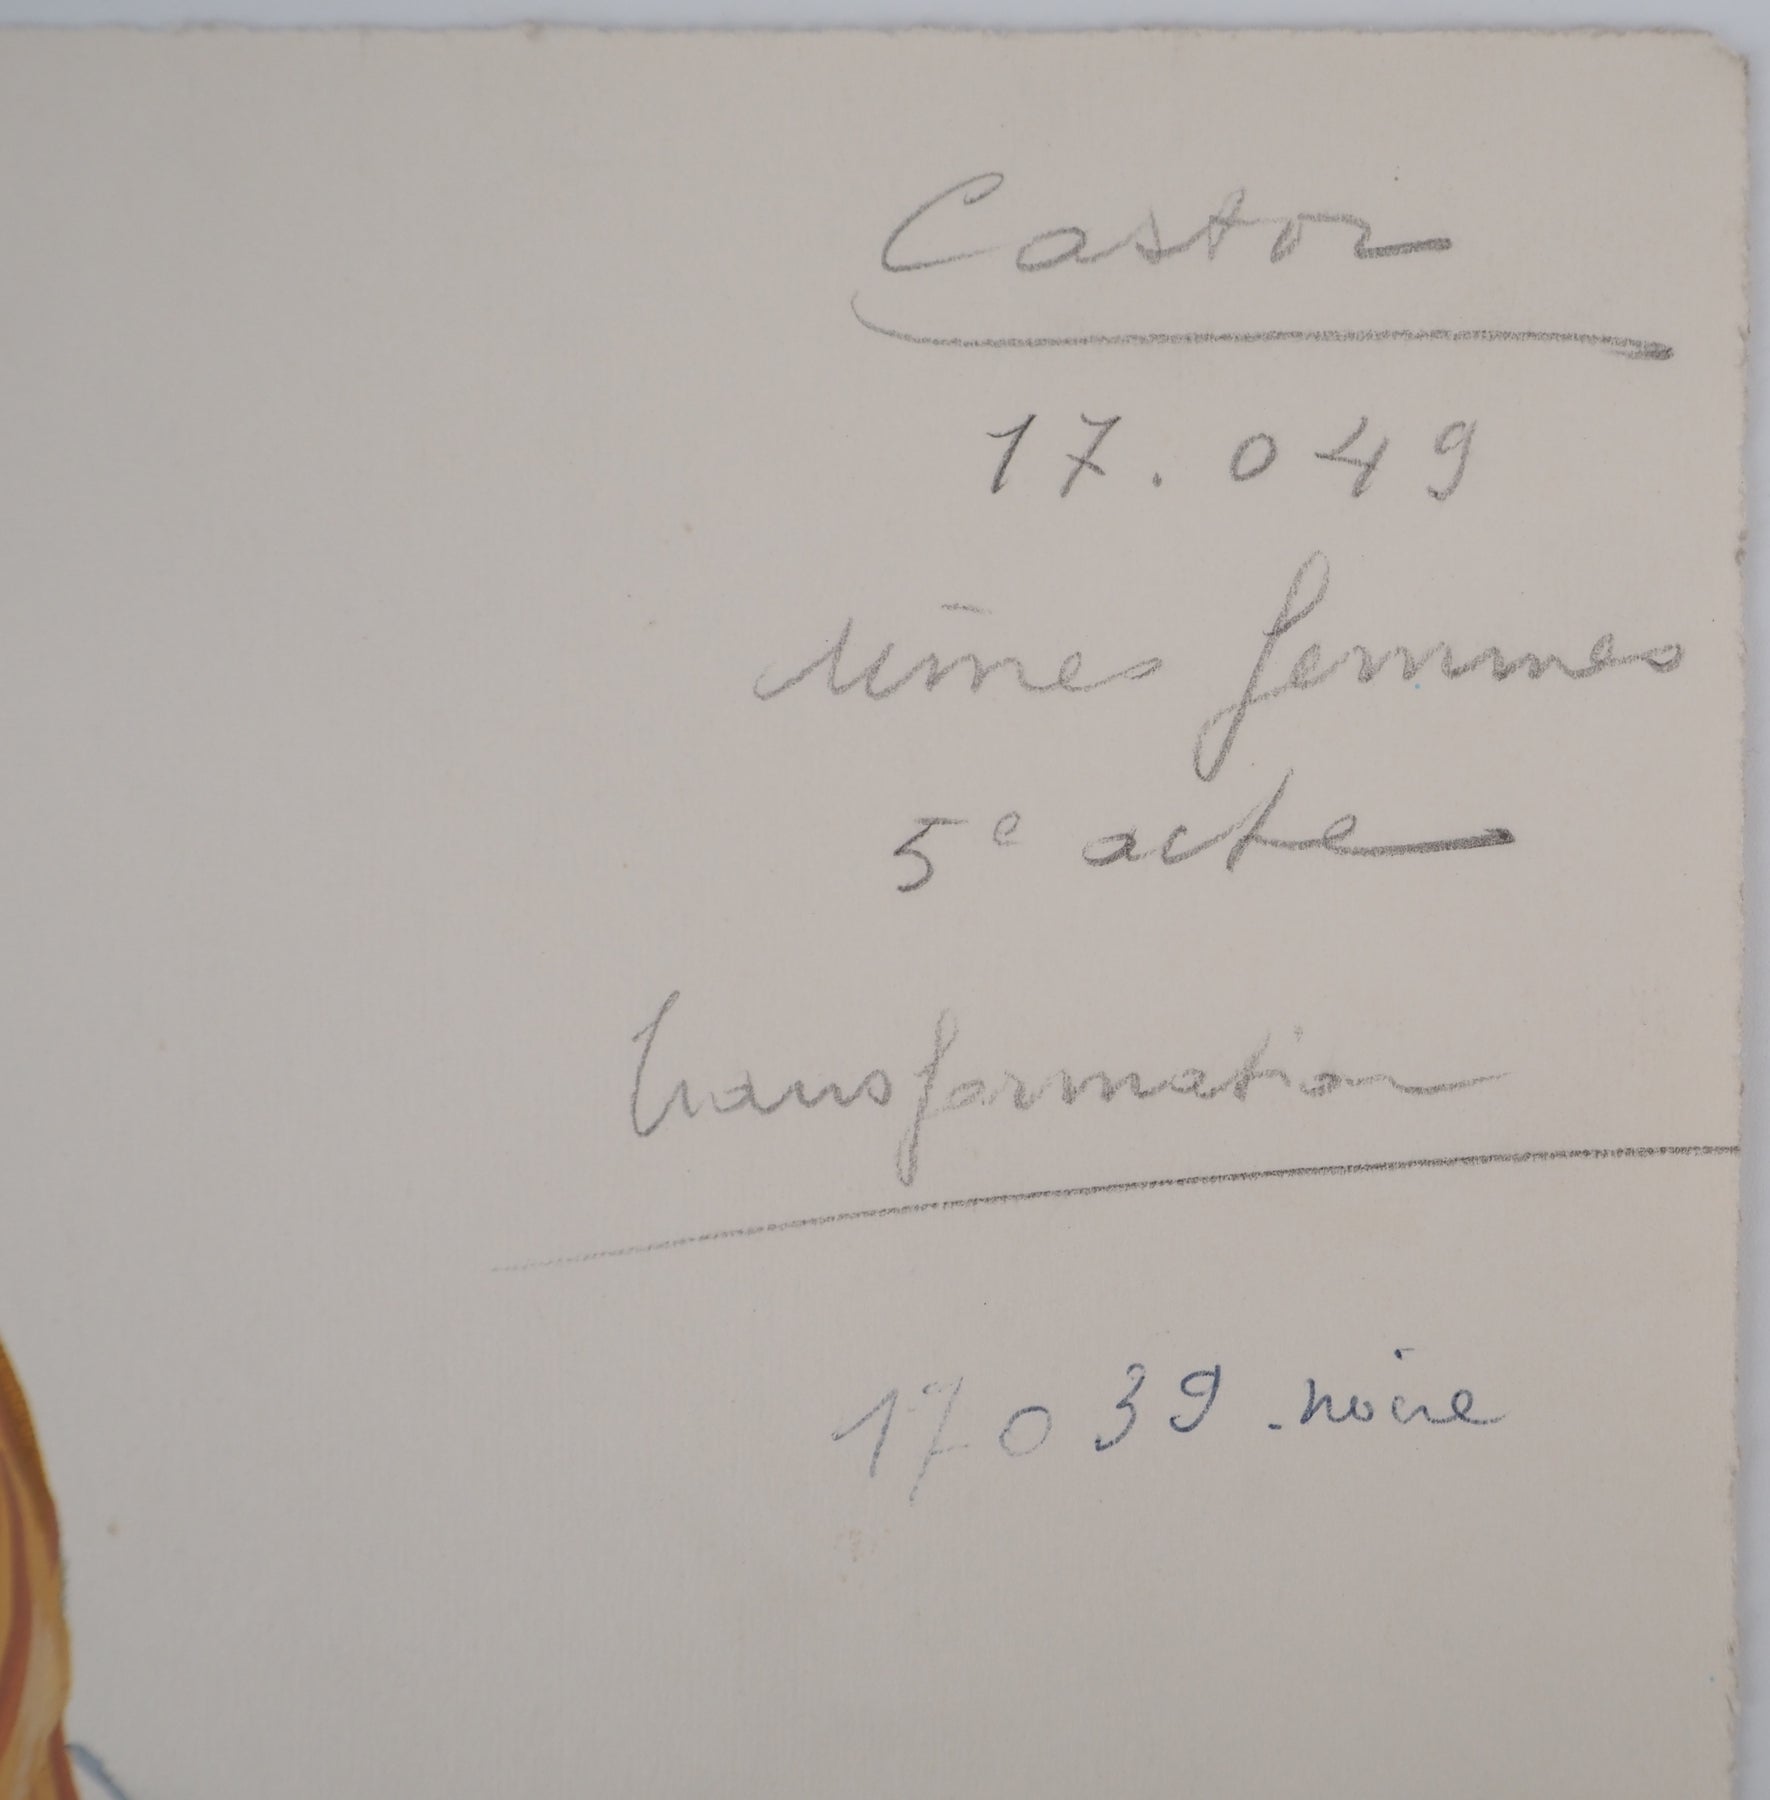 Castor
17.049
Mimes femmes
5e acte
Transformation
17039. noire